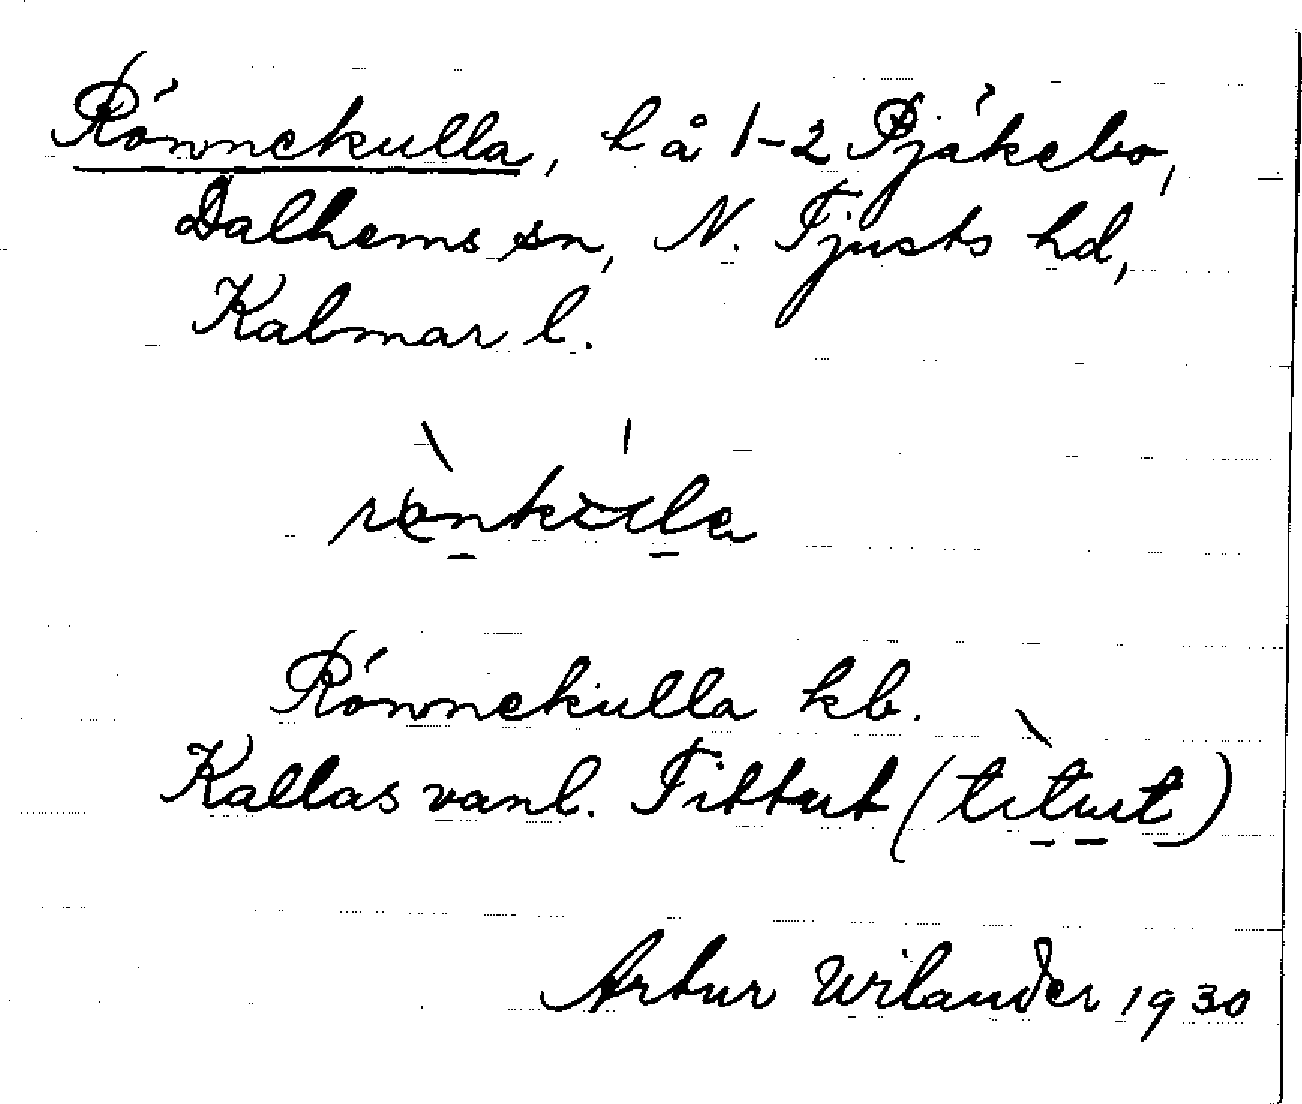 Rönnekulla, l å 1-2 Pjäkebo,
Dalhems sn, N. Tjusts hd,
Kalmar l.
Rönnekulla kb.
Kallas vanl. Tittut (titut)
Artur Wilander 1930